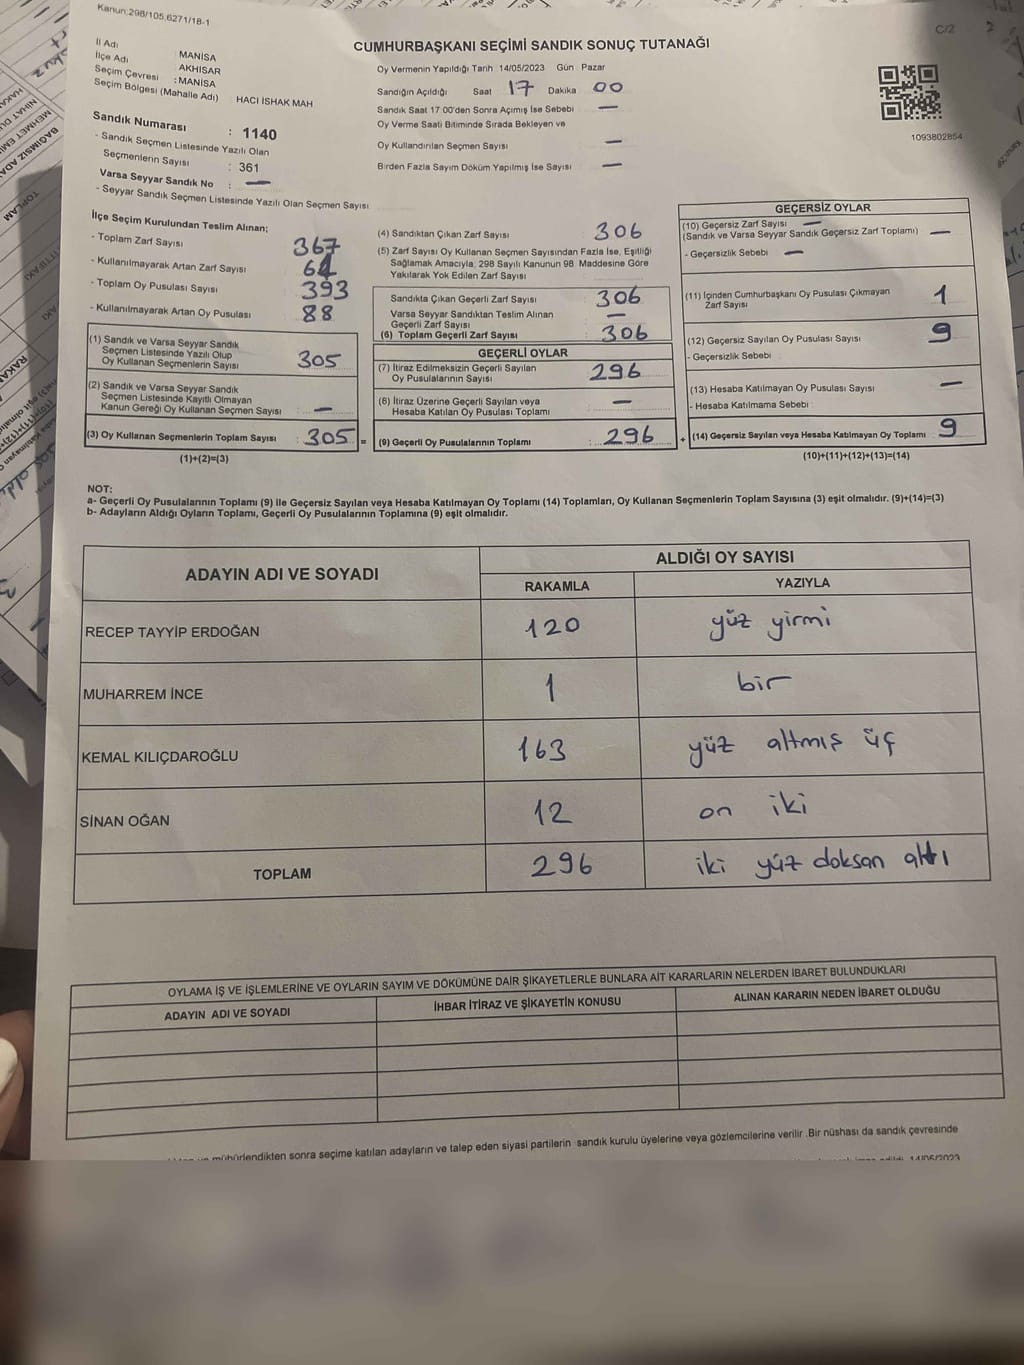 Kanun:298/105,6271/18-1
C/2
CUMHURBAŞKANI SEÇİMİ SANDIK SONUÇ TUTANAĞI
İl Adı : MANİSA
İlçe Adı : AKHİSAR
Seçim Çevresi : MANİSA
Seçim Bölgesi (Mahalle Adı) : HACI İSHAK MAH
Sandık Numarası : 1140
- Sandık Seçmen Listesinde Yazılı Olan
Seçmenlerin Sayısı : 361
Varsa Seyyar Sandık No : —
- Seyyar Sandık Seçmen Listesinde Yazılı Olan Seçmen Sayısı
Oy Vermenin Yapıldığı Tarih 14/05/2023 Gün Pazar
Sandığın Açıldığı Saat 17 Dakika 00
Sandık Saat 17.00'den Sonra Açımış İse Sebebi —
Oy Verme Saati Bitiminde Sırada Bekleyen ve
Oy Kullandırılan Seçmen Sayısı —
Birden Fazla Sayım Döküm Yapılmış İse Sayısı —
1093802854
İlçe Seçim Kurulundan Teslim Alınan;
- Toplam Zarf Sayısı 367
- Kullanılmayarak Artan Zarf Sayısı 61
- Toplam Oy Pusulası Sayısı 393
- Kullanılmayarak Artan Oy Pusulası 88
(1) Sandık ve Varsa Seyyar Sandık
Seçmen Listesinde Yazılı Olup
Oy Kullanan Seçmenlerin Sayısı 305
(2) Sandık ve Varsa Seyyar Sandık
Seçmen Listesinde Kayıtlı Olmayan
Kanun Gereği Oy Kullanan Seçmen Sayısı : —
(3) Oy Kullanan Seçmenlerin Toplam Sayısı : 305 =
(1)+(2)=(3)
(4) Sandıktan Çıkan Zarf Sayısı 306
(5) Zarf Sayısı Oy Kullanan Seçmen Sayısından Fazla İse, Eşitliği
Sağlamak Amacıyla, 298 Sayılı Kanunun 98. Maddesine Göre
Yakılarak Yok Edilen Zarf Sayısı
Sandıkta Çıkan Geçerli Zarf Sayısı 306
Varsa Seyyar Sandıktan Teslim Alınan
Geçerli Zarf Sayısı —
(6) Toplam Geçerli Zarf Sayısı 306
GEÇERLİ OYLAR
(7) İtiraz Edilmeksizin Geçerli Sayılan
Oy Pusulalarının Sayısı 296
(8) İtiraz Üzerine Geçerli Sayılan veya
Hesaba Katılan Oy Pusulası Toplamı —
(9) Geçerli Oy Pusulalarının Toplamı : 296 +
GEÇERSİZ OYLAR
(10) Geçersiz Zarf Sayısı —
(Sandık ve Varsa Seyyar Sandık Geçersiz Zarf Toplamı) —
- Geçersizlik Sebebi —
(11) İçinden Cumhurbaşkanı Oy Pusulası Çıkmayan
Zarf Sayısı 1
(12) Geçersiz Sayılan Oy Pusulası Sayısı 9
- Geçersizlik Sebebi :
(13) Hesaba Katılmayan Oy Pusulası Sayısı —
- Hesaba Katılmama Sebebi :
(14) Geçersiz Sayılan veya Hesaba Katılmayan Oy Toplamı 9
(10)+(11)+(12)+(13)=(14)
NOT:
a- Geçerli Oy Pusulalarının Toplamı (9) ile Geçersiz Sayılan veya Hesaba Katılmayan Oy Toplamı (14) Toplamları, Oy Kullanan Seçmenlerin Toplam Sayısına (3) eşit olmalıdır. (9)+(14)=(3)
b- Adayların Aldığı Oyların Toplamı, Geçerli Oy Pusulalarının Toplamına (9) eşit olmalıdır.
ADAYIN ADI VE SOYADI
ALDIĞI OY SAYISI
RAKAMLA YAZIYLA
RECEP TAYYİP ERDOĞAN 120 yüz yirmi
MUHARREM İNCE 1 bir
KEMAL KILIÇDAROĞLU 163 yüz altmış üç
SİNAN OĞAN 12 on iki
TOPLAM 296 iki yüz doksan altı
OYLAMA İŞ VE İŞLEMLERİNE VE OYLARIN SAYIM VE DÖKÜMÜNE DAİR ŞİKAYETLERLE BUNLARA AİT KARARLARIN NELERDEN İBARET BULUNDUKLARI
ADAYIN ADI VE SOYADI
İHBAR İTİRAZ VE ŞİKAYETİN KONUSU
ALINAN KARARIN NEDEN İBARET OLDUĞU
mühürlendikten sonra seçime katılan adayların ve talep eden siyasi partilerin sandık kurulu üyelerine veya gözlemcilerine verilir .Bir nüshası da sandık çevresinde
14/05/2023